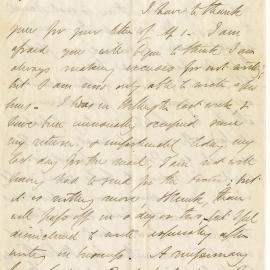 I have to thank
you for your letter of the 1. I am
afraid you will begin to think I am
always making excuses for not writing
but I am now only able to write a few
lines. I was in Wellington last week &
have been unusually occupied since
my return, & unfortunately today my
last day for the mail, I am not well
having had to send for the Doctor; but
it is nothing more I think, than
will pass off in a day or two, but I feel
disinclined to write especially after
writing on business. A missionary